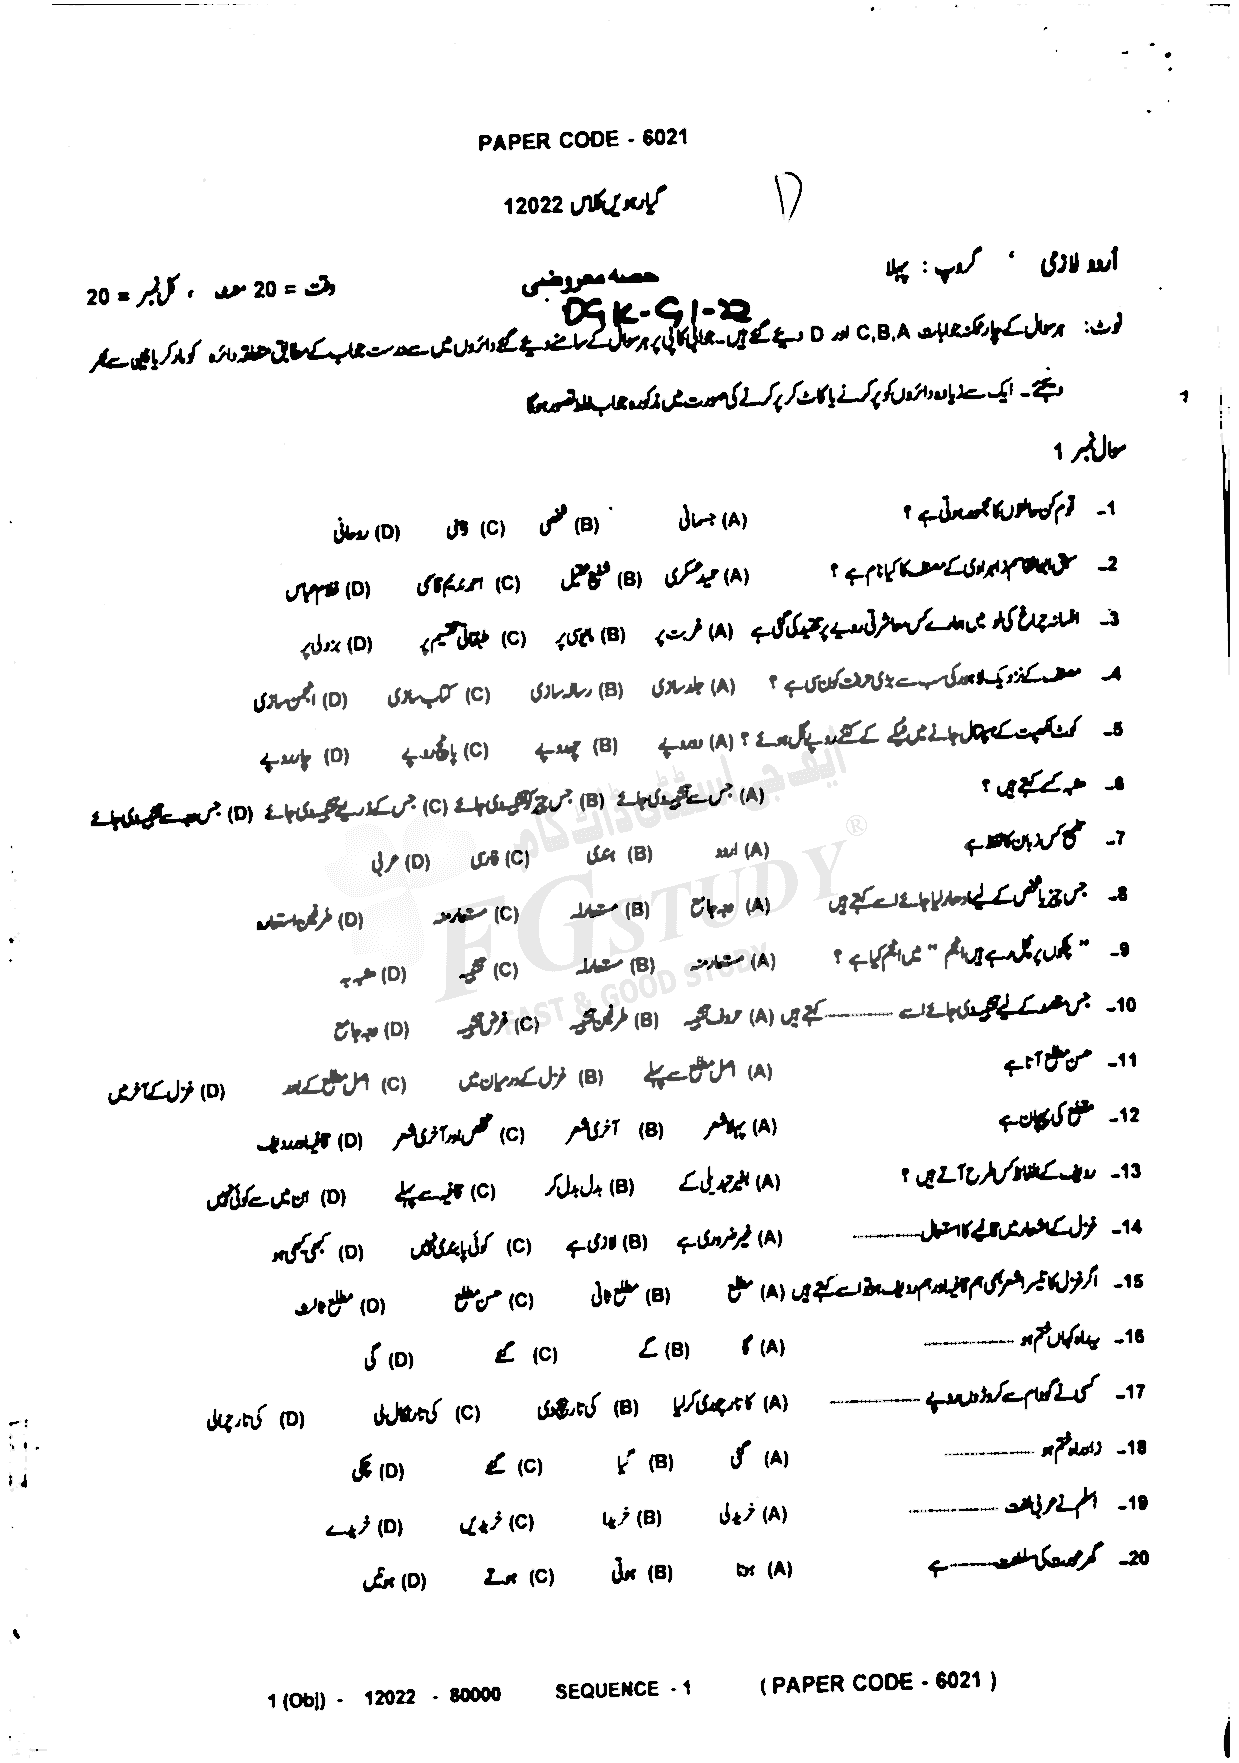 PAPER CODE - 6021
گیارھویں کلاس 12022
اُردو لازمی ، گروپ : پہلا
حصہ معروضی
وقت = 20 منٹ ، کل نمبر = 20
DGK-G1-22
نوٹ: ہر سوال کے چار ممکنہ جوابات C,B,A اور D دیے گئے ہیں۔ جوابی کاپی پر ہر سوال کے سامنے دیے گئے دائروں میں سے درست جواب کے مطابق متعلقہ دائرہ کو مارکر یا پین سے بھر
دیجئے۔ ایک سے زیادہ دائروں کو پُر کرنے یا کاٹ کر پُر کرنے کی صورت میں مذکورہ جواب غلط تصور ہوگا
سوال نمبر 1
1- قوم کن حالتوں کا مجموعہ ہوتی ہے ؟ (A) جسمانی (B) شخصی (C) ذاتی (D) روحانی
2- سبق ابوالقاسم زہراوی کے مصنف کا کیا نام ہے ؟ (A) حمید عسکری (B) شفیع عقیل (C) احمد ندیم قاسمی (D) غلام عباس
3- افسانہ چراغ کی لو میں ہمارے کس معاشرتی رویے پر تنقید کی گئی ہے (A) غربت پر (B) پر (C) طبقاتی تقسیم پر (D) بزدلی پر
4- مصنف کے نزدیک لاہور کی سب سے بڑی حرفت کون سی ہے ؟ (A) جلد سازی (B) رسالہ سازی (C) کتاب سازی (D) انجمن سازی
5- کوٹ لکھپت کے ہسپتال جانے میں ٹیکسی کے کتنے روپے بل ہوئے ؟ (A) دو روپے (B) چھ روپے (C) پانچ روپے (D) چار روپے
6- مشبہ کسے کہتے ہیں ؟ (A) جس سے تشبیہ دی جائے (B) جس چیز کو تشبیہ دی جائے (C) جس کے ذریعے تشبیہ دی جائے (D) جس وجہ سے تشبیہ دی جائے
7- تلمیح کس زبان کا لفظ ہے (A) اردو (B) ہندی (C) فارسی (D) عربی
8- جس چیز یا شخص کے لیے ادھار لیا جائے اسے کہتے ہیں (A) وجہ جامع (B) مستعار لہ (C) مستعار منہ (D) طرفین استعارہ
9- " پلکوں پر نکل رہے ہیں انجم " میں انجم کیا ہے ؟ (A) مستعار منہ (B) مستعار لہ (C) تشبیہ (D) مشبہ بہ
10- جس مقصد کے لیے تشبیہ دی جائے اسے ---------- کہتے ہیں (A) حروف تشبیہ (B) طرفین تشبیہ (C) غرض تشبیہ (D) وجہ جامع
11- حسن مطلع آتا ہے (A) اصل مطلع سے پہلے (B) غزل کے درمیان میں (C) اصل مطلع کے بعد (D) غزل کے آخر میں
12- مقطع کی پہچان ہے (A) پہلا شعر (B) آخری شعر (C) تخلص اور آخری شعر (D) قافیہ اور ردیف
13- ردیف کے الفاظ کس طرح آتے ہیں ؟ (A) بغیر تبدیلی کے (B) بدل بدل کر (C) قافیے سے پہلے (D) ان میں سے کوئی نہیں
14- غزل کے اشعار میں قافیے کا استعمال ---------- (A) غیر ضروری ہے (B) لازمی ہے (C) کوئی پابندی نہیں (D) کبھی کبھی ہو
15- اگر غزل کا تیسرا شعر بھی ہم قافیہ اور ہم ردیف ہو تو اسے کہتے ہیں (A) مطلع (B) مطلع ثانی (C) حسن مطلع (D) مطلع ثالث
16- یہ راہ کہاں ختم ہو ---------- (A) گا (B) گے (C) گئے (D) گی
17- کسی نے گودام سے کروڑوں روپے ---------- (A) کا تار چوری کر لیا (B) کی تار بیچ دی (C) کی تار نکال لی (D) کی تار چرالی
18- زادِ راہ ختم ہو ---------- (A) گئی (B) گیا (C) گئے (D) چکی
19- اسلم نے عربی لغت ---------- (A) خریدلی (B) خریدا (C) خریدیں (D) خریدے
20- گھر عورت کی سلطنت ---------- ہے (A) ہوتا (B) ہوتی (C) ہوتے (D) ہوتیں
1 (Obj) - 12022 - 80000 SEQUENCE - 1 ( PAPER CODE - 6021 )
ایف جی اسٹڈی ڈاٹ کام
FG STUDY ®
FAST & GOOD STUDY